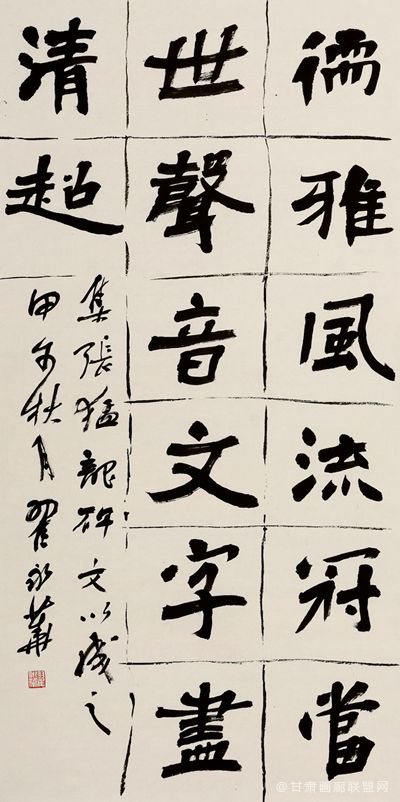 儒雅風流冠當
世聲音文字盡
清超
集張猛龍碑文以成之
甲午秋月翟永華
@甘肃画廊联盟网